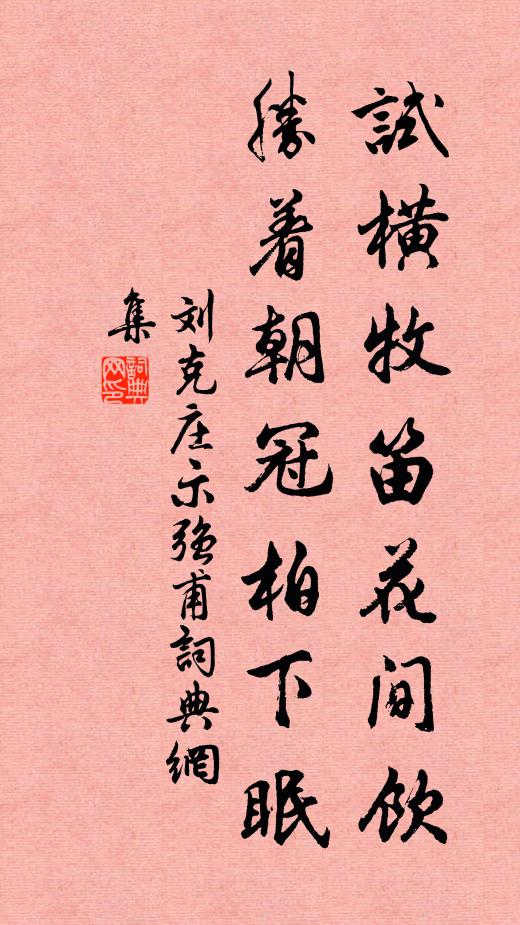 試横牧笛花间飲
勝着朝冠柏下眠
刘克庄示强甫詞典網
集
詞典网印